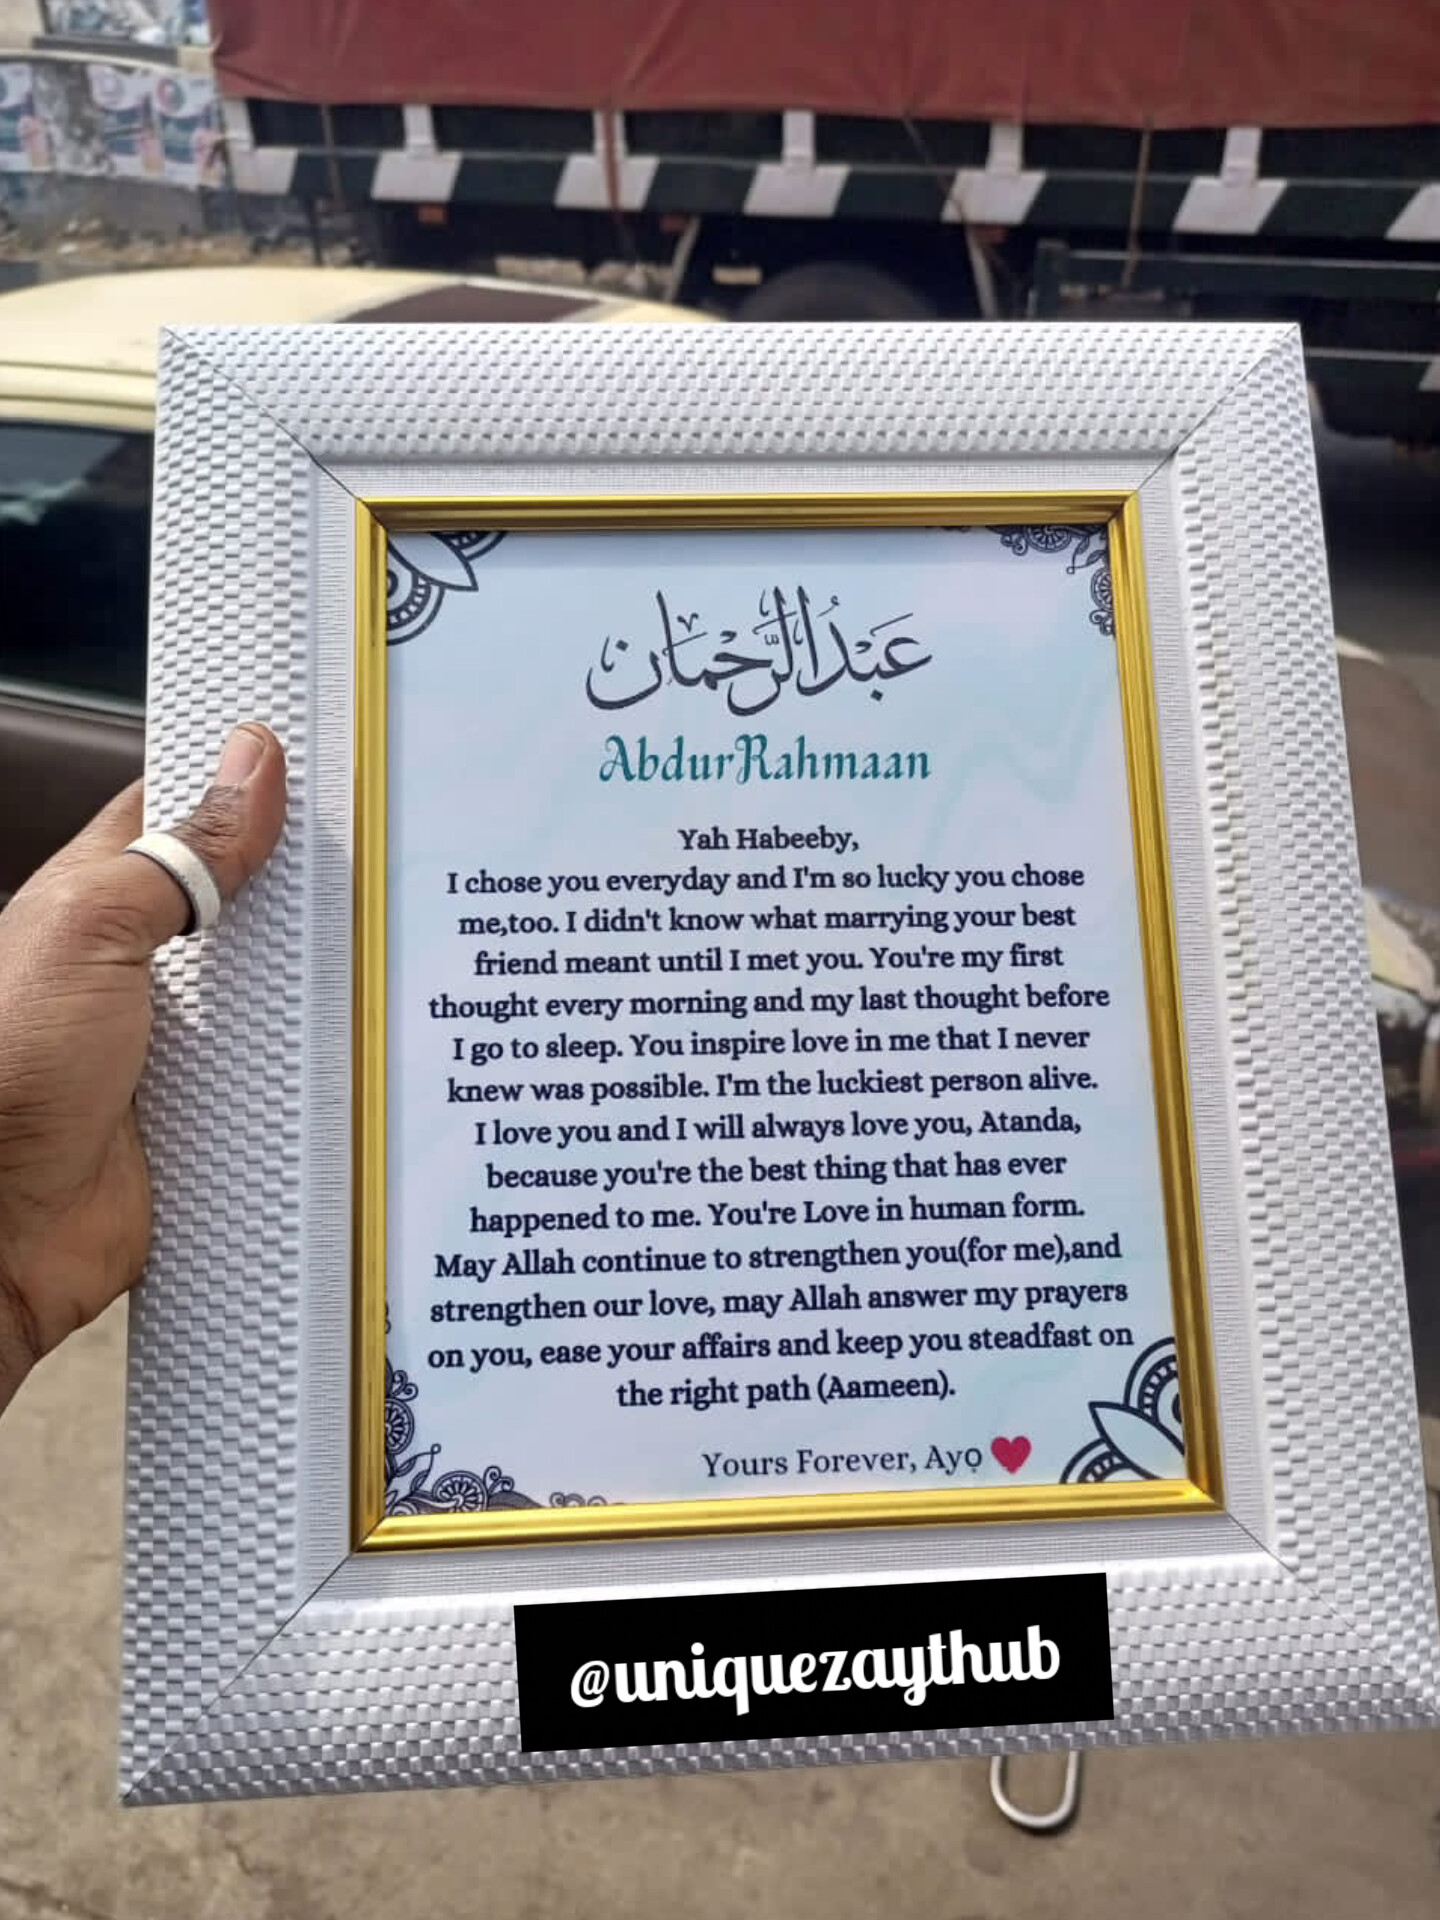 عَبْدُالرَّحْمَان
AbdurRahmaan
Yah Habeeby,
I chose you everyday and I'm so lucky you chose
me,too. I didn't know what marrying your best
friend meant until I met you. You're my first
thought every morning and my last thought before
I go to sleep. You inspire love in me that I never
knew was possible. I'm the luckiest person alive.
I love you and I will always love you, Atanda,
because you're the best thing that has ever
happened to me. You're Love in human form.
May Allah continue to strengthen you(for me),and
strengthen our love, may Allah answer my prayers
on you, ease your affairs and keep you steadfast on
the right path (Aameen).
Yours Forever, Ayọ
@uniquezaythub